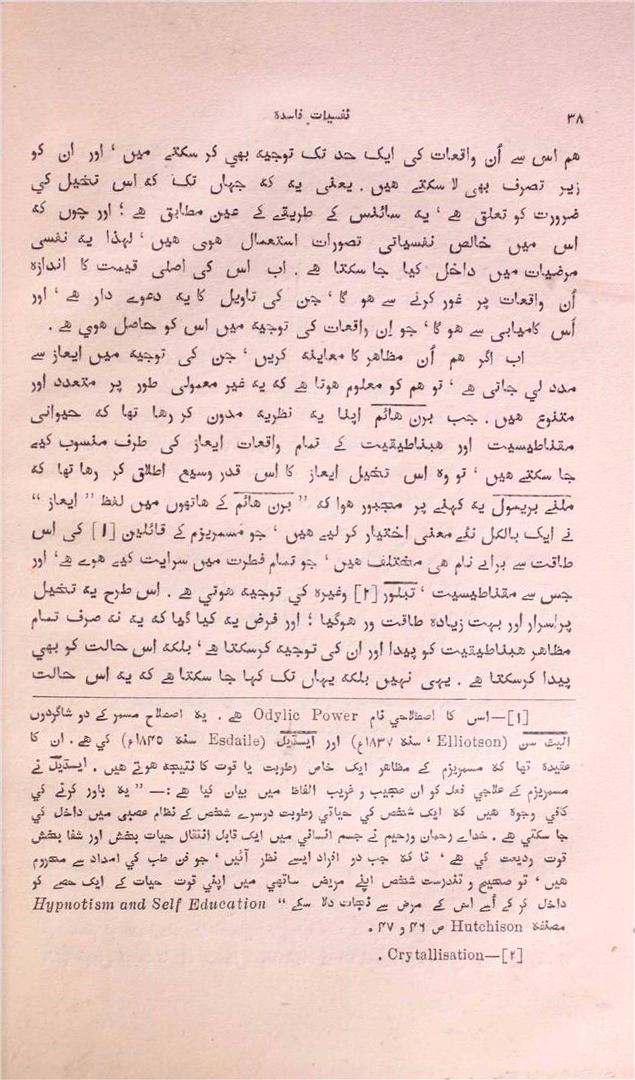 ۳۸
نفسیات فاسدہ
ہم اس سے اُن واقعات کی ایک حد تک توجیہ بھی کر سکتے میں ، اور ان کو
زیر تصرف بھی لا سکتے ہیں . یعنی یہ کہ جہاں تک کہ اس تخیل کی
ضرورت کو تعلق ہے ، یہ سائنس کے طریقے کے عین مطابق ہے ؛ اور چوں کہ
اس میں خالص نفسیاتی تصورات استعمال ہوی ہیں ، لہذا یہ نفسی
مرضیات میں داخل کیا جا سکتا ہے . اب اس کی اصلی قیمت کا اندازہ
اُن واقعات پر غور کرنے سے ہو گا ، جن کی تاویل کا یہ دعوے دار ہے ، اور
اُس کامیابی سے ہو گا ، جو اِن واقعات کی توجیہ میں اس کو حاصل ہوی ہے .
اب اگر ہم اُن مظاہر کا معاینہ کریں ، جن کی توجیہ میں ایعاز سے
مدد لی جاتی ہے ، تو ہم کو معلوم ہوتا ہے کہ یہ غیر معمولی طور پر متعدد اور
متنوع ہیں . جب برن ہائم اپنا یہ نظریہ مدون کر رہا تھا کہ حیوانی
مقناطیسیت اور ہبناطیقیت کے تمام واقعات ایعاز کی طرف منسوب کیے
جا سکتے ہیں ، تو وہ اس تخیل ایعاز کا اس قدر وسیع اطلاق کر رہا تھا کہ
ملنے بریمول یہ کہنے پر مجبور ہوا کہ ” برن ہائم کے ہاتھوں میں لفظ ” ایعاز “
نے ایک بالکل نئے معنی اختیار کر لیے ہیں ، جو مسمریزم کے قائلین [۱] کی اس
طاقت سے برائے نام ہی مختلف ہیں ، جو تمام فطرت میں سرایت کیے ہوے ہے ، اور
جس سے مقناطیسیت ، تبلور [۲] وغیرہ کی توجیہ ہوتی ہے . اس طرح یہ تخیل
پراسرار اور بہت زیادہ طاقت ور ہوگیا ؛ اور فرض یہ کیا گیا کہ یہ نہ صرف تمام
مظاہر ہبناطیقیت کو پیدا اور ان کی توجیہ کرسکتا ہے ، بلکہ اس حالت کو بھی
پیدا کرسکتا ہے . یہی نہیں بلکہ یہاں تک کہا جا سکتا ہے کہ یہ اس حالت
[۱]—اس کا اصطلاحی نام Odylic Power ہے . یہ اصطلاح مسمر کے دو شاگردوں
الیٹ سن (Elliotson ، سنہ ۱۸۳۷ع) اور ایسڈیل (Esdaile سنہ ۱۸۴۵ع) کی ہے . ان کا
عقیدہ تھا کہ مسمریزم کے مظاہر ایک خاص رطوبت یا قوت کا نتیجہ ہوتے ہیں . ایسڈیل نے
مسمریزم کے علاجی فعل کو ان عجیب و غریب الفاظ میں بیان کیا ہے :— ” یہ باور کرنے کی
کافی وجوہ ہیں کہ ایک شخص کی حیاتی رطوبت دوسرے شخص کے نظام عصبی میں داخل کی
جا سکتی ہے . خداے رحمان ورحیم نے جسم انسانی میں ایک قابل انتقال حیات بخش اور شفا بخش
قوت ودیعت کی ہے ، تا کہ جب دو افراد ایسے نظر آئیں ، جو فن طب کی امداد سے محروم
ہیں ، تو صحیح و تندرست شخص اپنے مریض ساتھی میں اپنی قوت حیات کے ایک حصے کو
داخل کر کے اُسے اس کے مرض سے نجات دلا سکے “ Hypnotism and Self Education
مصنفہ Hutchison ص ۴۶ و ۴۷ .
[۲]—Crytallisation .